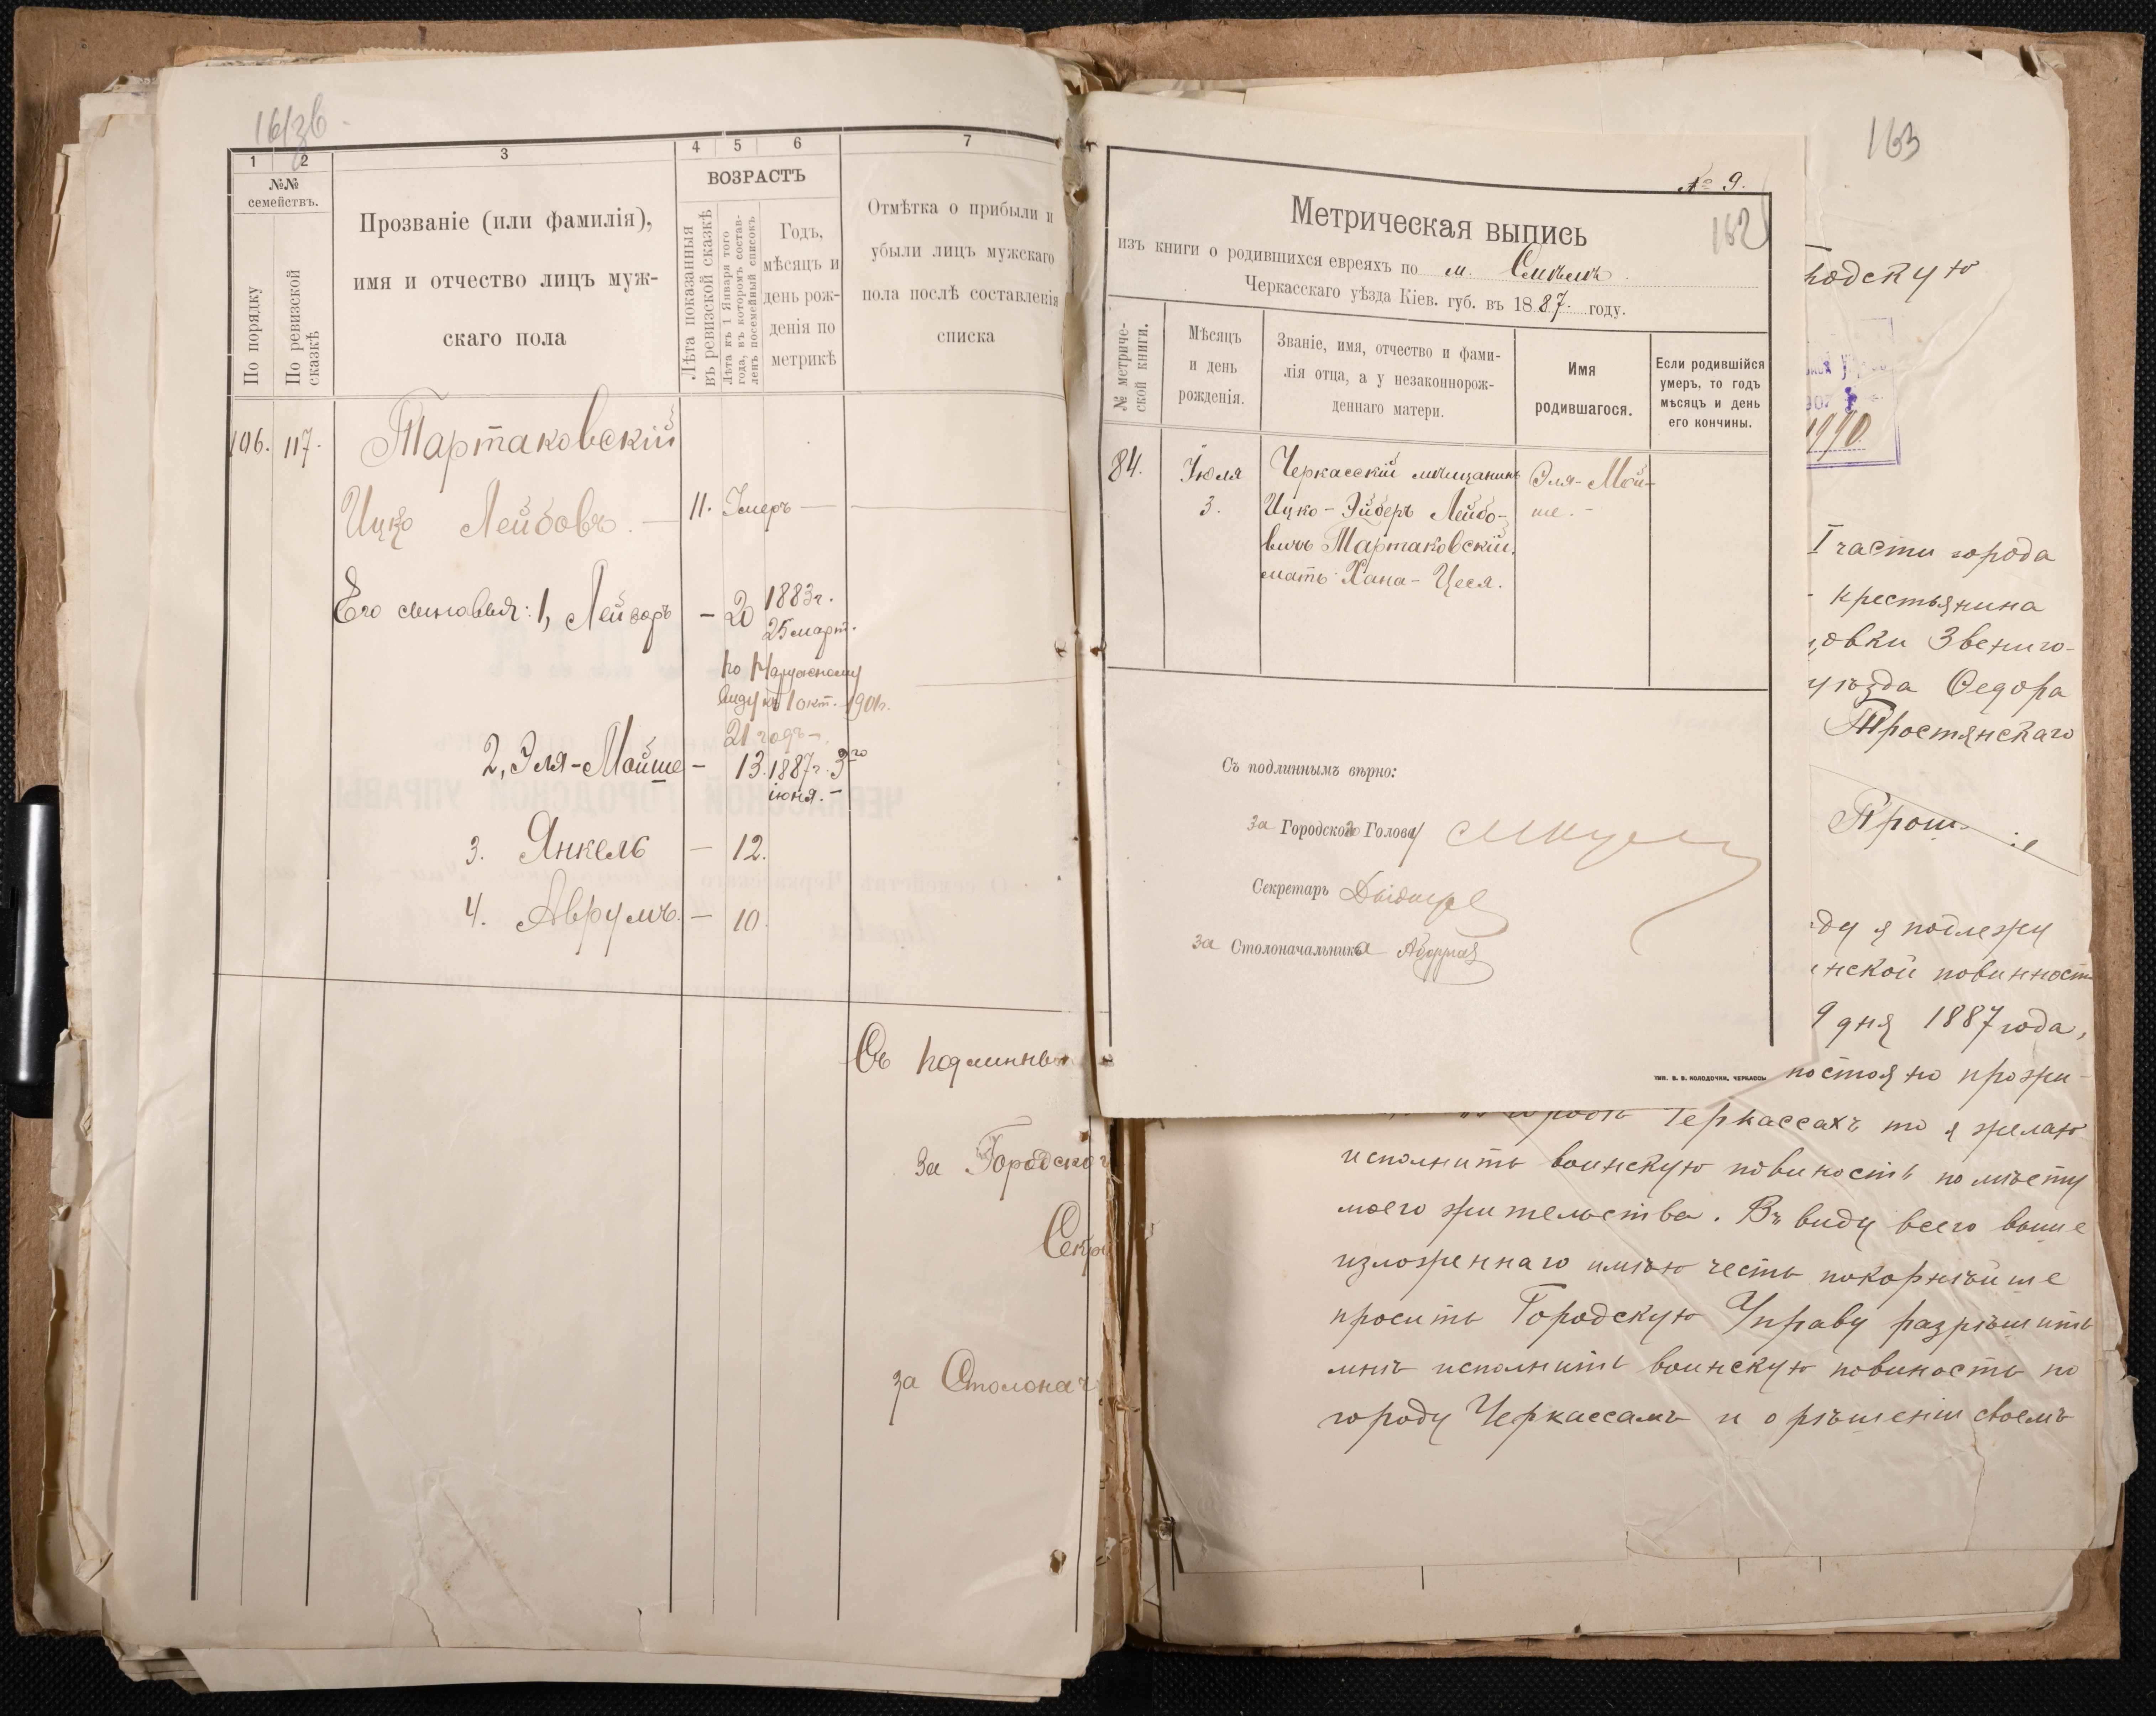 1 2 3 4 5 6 7
№№
семействъ.
По порядку
По ревизской
сказкѣ
Прозваніе (или фамилія),
имя и отчество лицъ муж-
скаго пола
ВОЗРАСТЪ
Лѣта показанныя
въ ревизской сказкѣ
Лѣта къ 1 Января того
года, въ которомъ состав-
ленъ посемейный списокъ
Годъ,
мѣсяцъ и
день рож-
денія по
метрикѣ
Отмѣтка о прибыли и
убыли лицъ мужскаго
пола послѣ составленія
списка
106. 117. Тартаковскій
Ицко Лейбовъ. — 11. Умеръ —
Его сыновья: 1, Лейзоръ — 20 1883 г.
25 март.
по наружному
виду къ 1 окт. 1901 г.
21 годъ —
2, Эля-Мойше — 13. 1887 г. 3го
іюня. —
3. Янкель — 12.
4. Аврумъ. — 10.
Съ подлинны
За Городског
Секр
за Столонач
№ 9.
162
Метрическая выпись
изъ книги о родившихся евреяхъ по м. Смѣлѣ
Черкасскаго уѣзда Кіев. губ. въ 1887 году.
№ метриче-
ской книги.
Мѣсяцъ
и день
рожденія.
Званіе, имя, отчество и фами-
лія отца, а у незаконнорож-
деннаго матери.
Имя
родившагося.
Если родившійся
умеръ, то годъ
мѣсяцъ и день
его кончины.
84. Іюля Черкасскій мѣщанинъ Эля-Мой-
3. Ицко-Эйберъ Лейбо- ше. -
вичъ Тартаковскій,
мать Хана-Цеся.
Съ подлиннымъ вѣрно:
за Городского Голову
Секретарь
за Столоначальника
ТИП. В. В. КОЛОДОЧКИ, ЧЕРКАССЫ
163
родскую
1990
I части города
крестьянина
овки Звениго-
уѣзда Ѳедора
Тростянскаго
Прош іе
ду я подлежу
нской повинност
9 дня 1887 года,
постояно прожи-
Черкассахъ то я желаю
исполнить воинскую повиность по мѣсту
моего жительства. Въ виду всего выше
изложеннаго имѣю честь покорнѣйше
просить Городскую Управу разрѣшить
мнѣ исполнить воинскую повиность по
городу Черкассамъ и о рѣшеніи своемъ